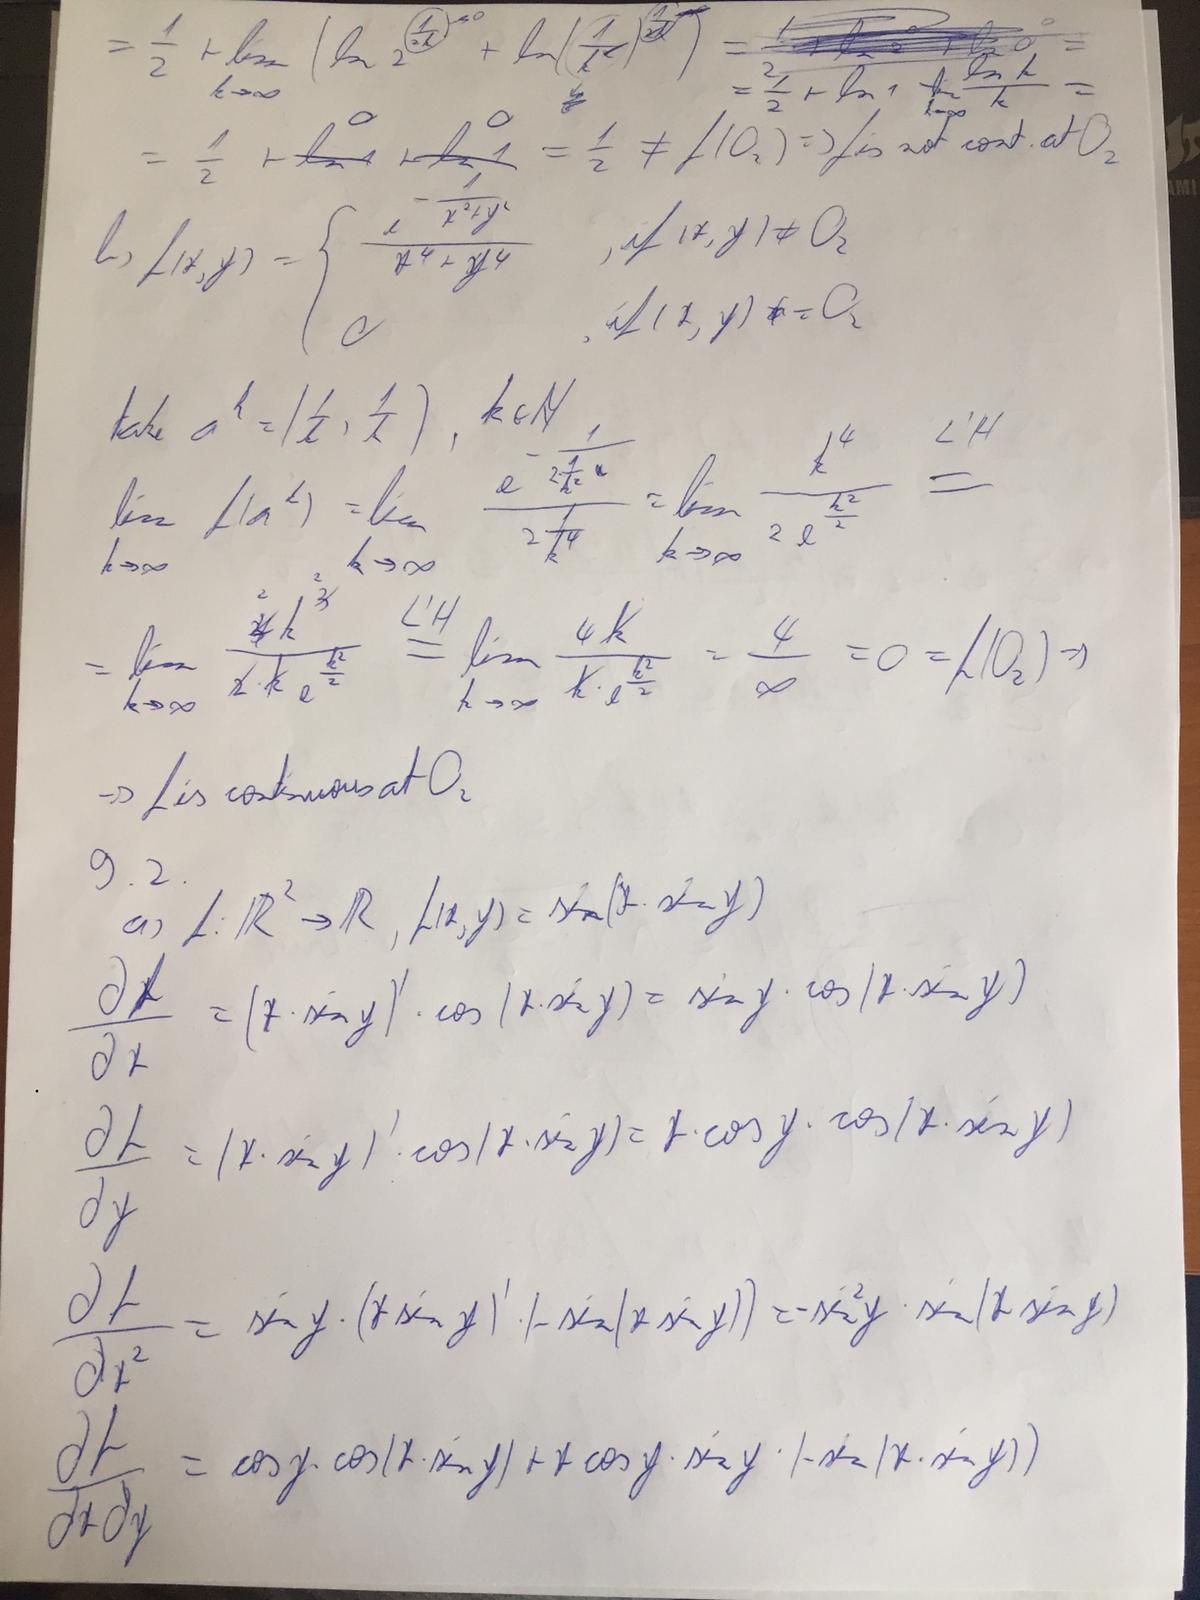 = 1/2 + lim k→∞ (ln 2^(1/2k) →0 + ln(1/k)
= 1/2 + ln 1 lim k→∞ ln k / k =
= 1/2 + ln 1 0 + ln 1 0 = 1/2 ≠ f(O₂) => f is not cont. at O₂
b) f(x,y) = { e^(-1/(x²+y²)) / (x⁴+y⁴) , if (x,y) ≠ O₂
0 , if (x,y) = O₂
take a^k = (1/k, 1/k), k∈N
lim k→∞ f(a^k) = lim k→∞ e^(-1/(2 1/k²)) / (2 1/k⁴) = lim k→∞ k⁴ / (2 e^(k²/2)) L'H =
= lim k→∞ 2 k² / e^(k²/2) L'H = lim k→∞ 4k / (k·e^(k²/2)) = 4/∞ = 0 = f(O₂) =>
=> f is continuous at O₂
9.2.
a) f: ℝ² → ℝ, f(x,y) = sin(x·sin y)
∂f/∂x = (x·sin y)'·cos(x·sin y) = sin y·cos(x·sin y)
∂f/∂y = (x·sin y)'·cos(x·sin y) = x·cos y·cos(x·sin y)
∂f/∂x² = sin y·(x sin y)'·(-sin(x sin y)) = -sin²y · sin(x sin y)
∂f/∂x∂y = cos y·cos(x·sin y) + x cos y·sin y·(-sin(x·sin y))